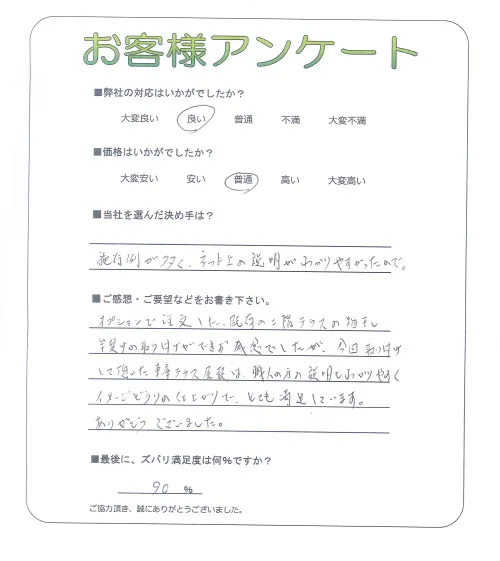 お客様アンケート
■弊社の対応はいかがでしたか？
大変良い 良い 普通 不満 大変不満
■価格はいかがでしたか？
大変安い 安い 普通 高い 大変高い
■当社を選んだ決め手は？
施行例が多く、ネット上の説明がわかりやすかったので。
■ご感想・ご要望などをお書き下さい。
オプションで注文した、既存の二階テラスの物干し
の取り付けができず残念でしたが、今回取り付け
して頂いた テラス屋根は、職人の方の説明もわかりやすく
イメージどうりの仕上がりで、とても満足しています。
ありがとうございました。
■最後に、ズバリ満足度は何％ですか？
90 ％
ご協力頂き、誠にありがとうございました。